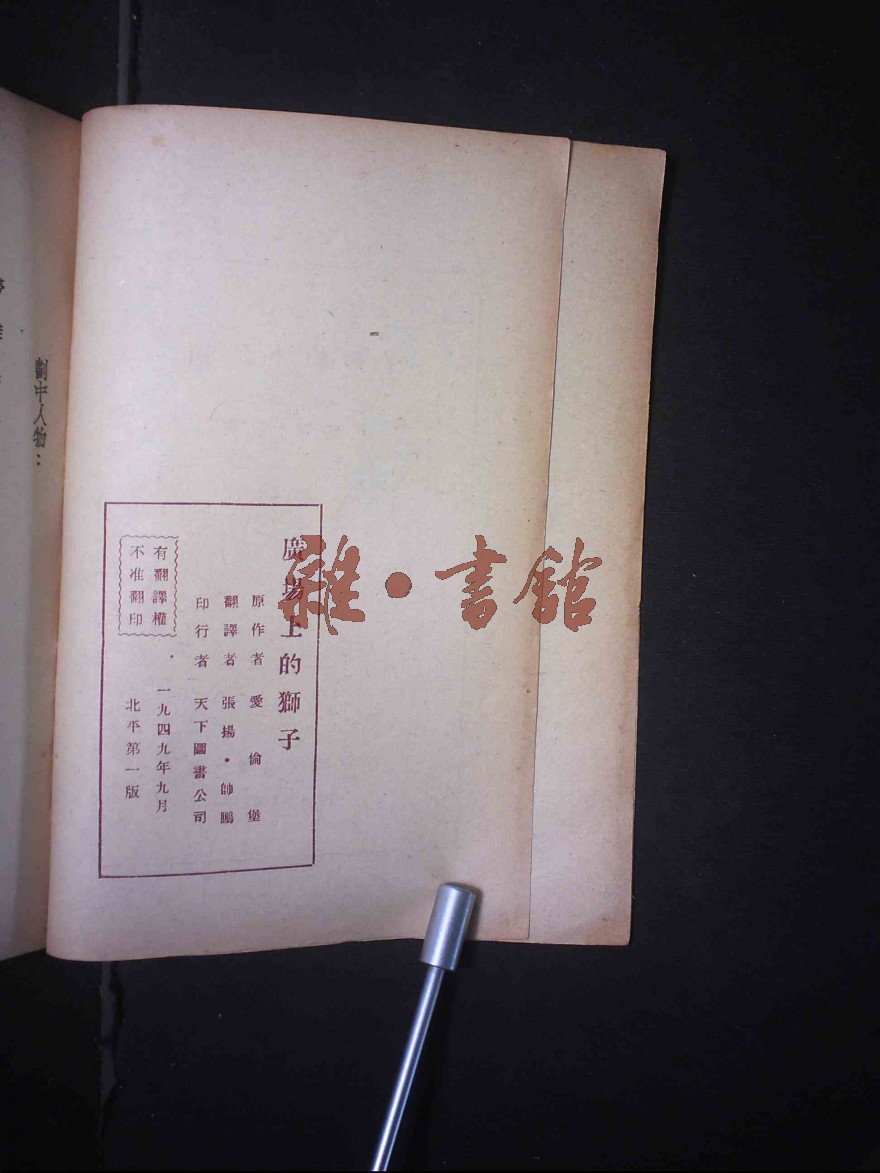 廣場上的獅子
原作者 愛倫堡
翻譯者 張揚・帥鵬
印行者 天下圖書公司
有翻譯權
不准翻印
・一九四九年九月
北平第一版
劇中人物：
雜・書館